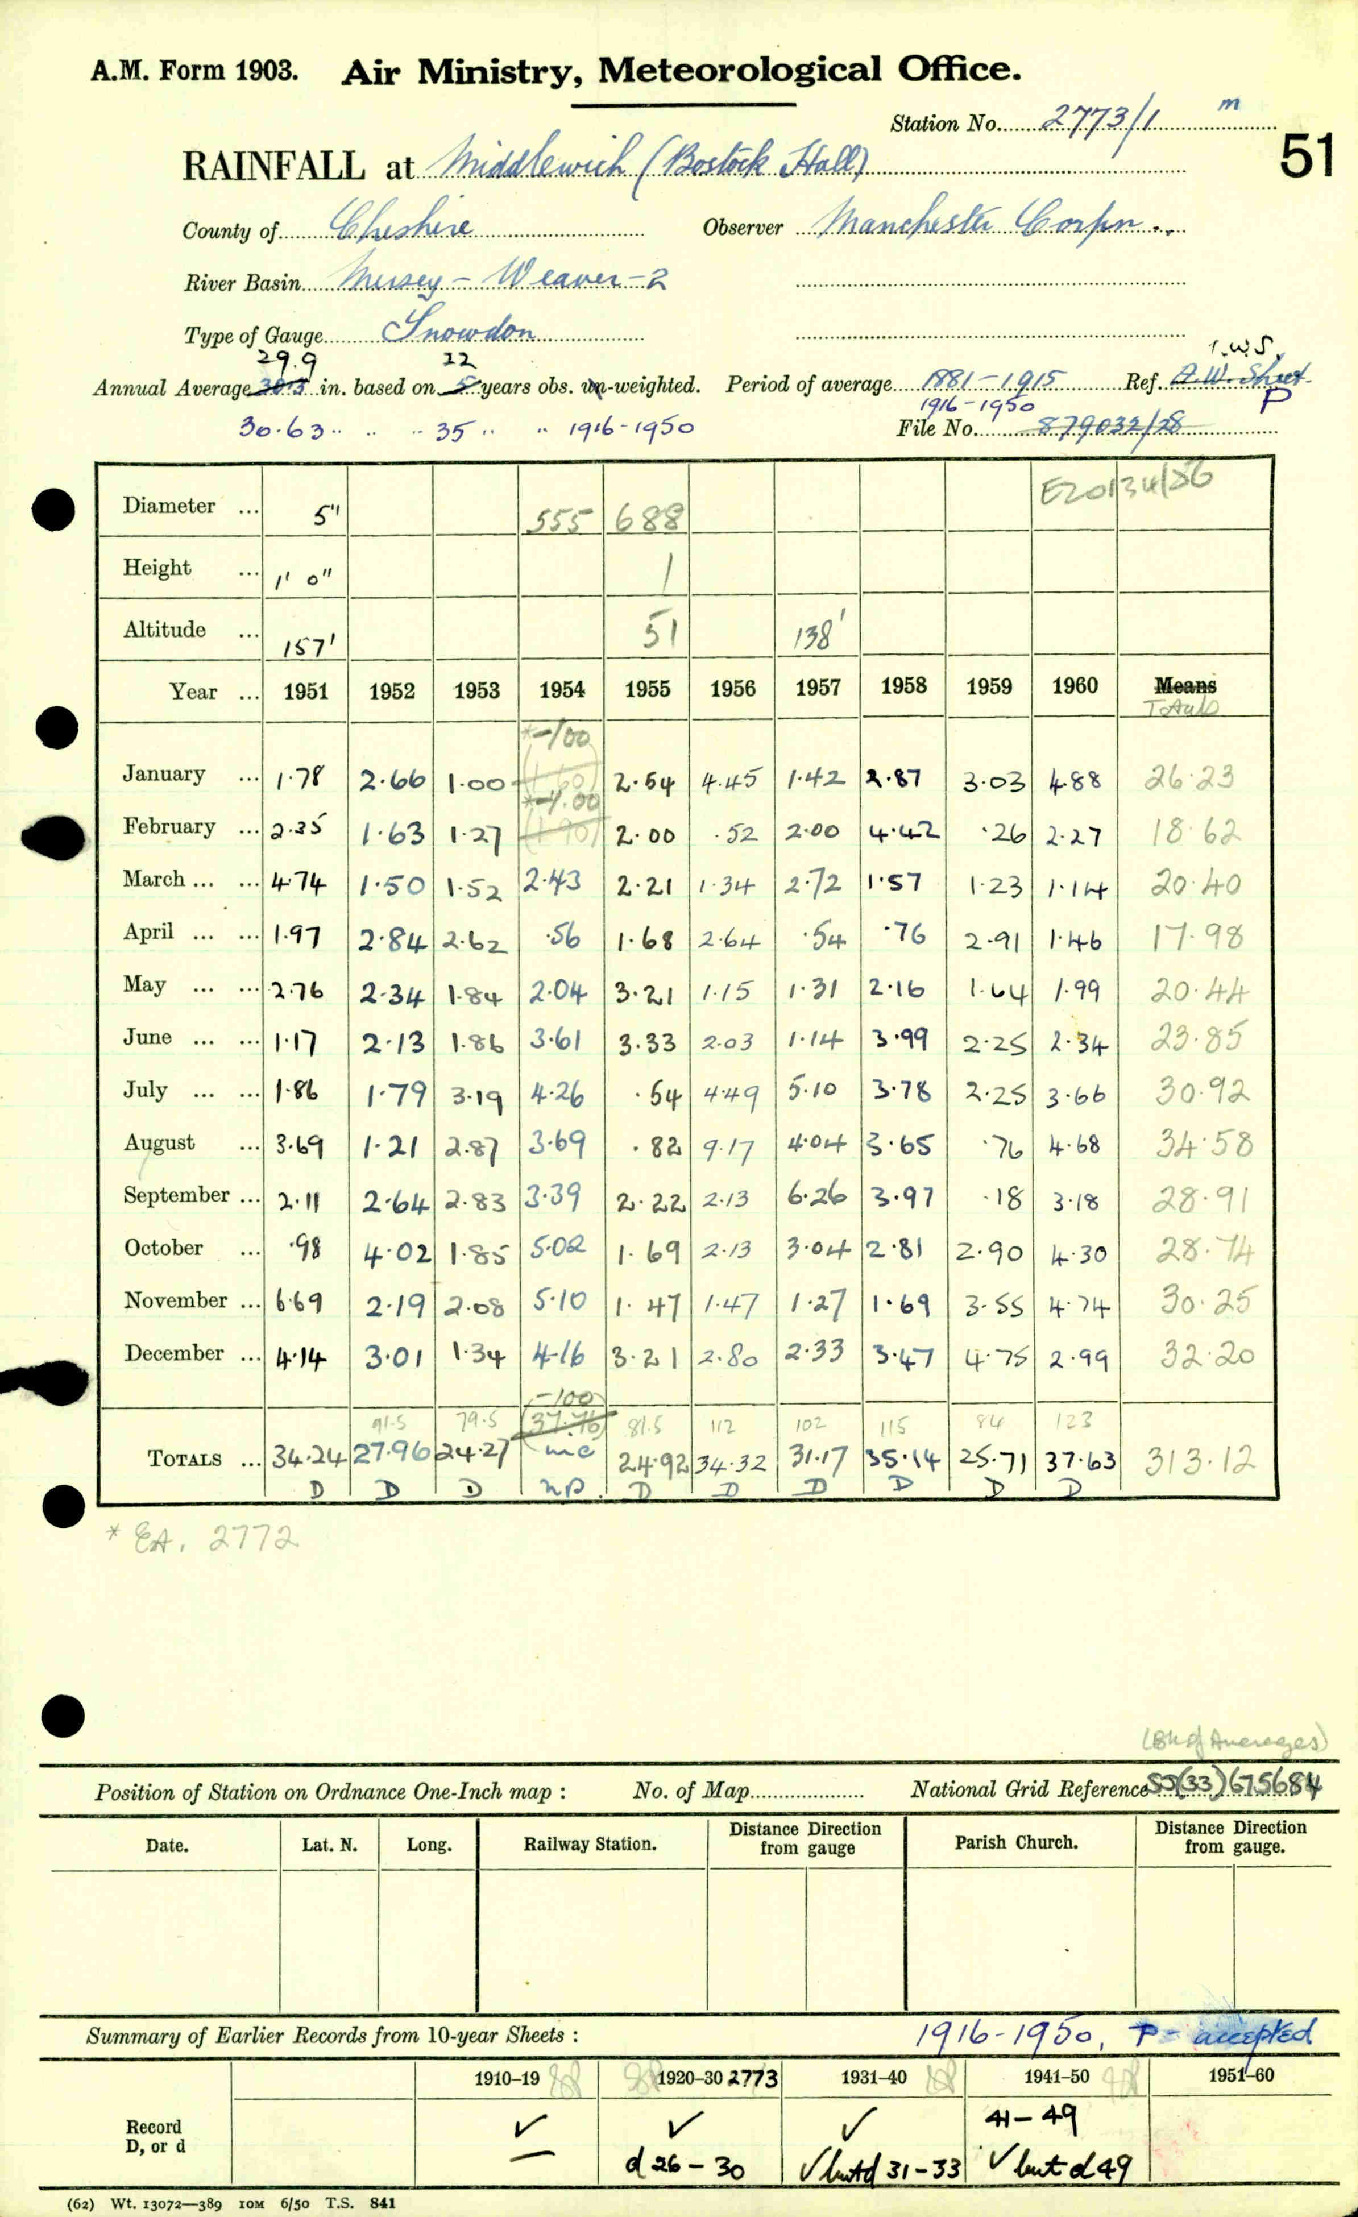 A.M. Form 1903. Air Ministry, Meteorological Office.
Station No. 2773/1 m
51
RAINFALL at Middlewich (Bostock Hall)
County of Cheshire Observer Manchester Corpn.
River Basin Mersey - Weaver - 2
Type of Gauge Snowdon
29.9 22 I.W.S.
Annual Average 30.3 in. based on 5 years obs. un-weighted. Period of average 1881-1915 Ref.
1916-1950 P
30.63 " " " 35 " " 1916-1950 File No. 879032/28
Diameter ... 5" 555 688 E20134/56
Height ... 1' 0" 1
Altitude ... 157' 51 138'
Year ... 1951 1952 1953 1954 1955 1956 1957 1958 1959 1960 Means
Totals
*-100
January ... 1.78 2.66 1.00 (1.60) 2.54 4.45 1.42 2.87 3.03 4.88 26.23
February ... 2.35 1.63 1.27 (1.90) 2.00 .52 2.00 4.42 .26 2.27 18.62
March ... ... 4.74 1.50 1.52 2.43 2.21 1.34 2.72 1.57 1.23 1.14 20.40
April ... ... 1.97 2.84 2.62 .56 1.68 2.64 .54 .76 2.91 1.46 17.98
May ... ... 2.76 2.34 1.84 2.04 3.21 1.15 1.31 2.16 1.64 1.99 20.44
June ... ... 1.17 2.13 1.86 3.61 3.33 2.03 1.14 3.99 2.25 2.34 23.85
July ... ... 1.86 1.79 3.19 4.26 .54 4.49 5.10 3.78 2.25 3.66 30.92
August ... 3.69 1.21 2.87 3.69 .82 9.17 4.04 3.65 .76 4.68 34.58
September ... 2.11 2.64 2.83 3.39 2.22 2.13 6.26 3.97 .18 3.18 28.91
October ... .98 4.02 1.85 5.02 1.69 2.13 3.04 2.81 2.90 4.30 28.74
November ... 6.69 2.19 2.08 5.10 1.47 1.47 1.27 1.69 3.55 4.74 30.25
December ... 4.14 3.01 1.34 4.16 3.21 2.80 2.33 3.47 4.75 2.99 32.20
-100
91.5 79.5 (37.76) 81.5 112 102 115 84 123
TOTALS ... 34.24 27.96 24.27 inc 24.92 34.32 31.17 35.14 25.71 37.63 313.12
D D D D D D D D D
* EA. 2772
(Bk of Averages)
Position of Station on Ordnance One-Inch map : No. of Map National Grid Reference SJ(33)675684
Date. Lat. N. Long. Railway Station. Distance Direction from gauge Parish Church. Distance Direction from gauge.
Summary of Earlier Records from 10-year Sheets : 1916-1950, P - accepted
1910-19 1920-30 2773 1931-40 1941-50 1951-60
Record ✓ ✓ ✓ 41-49
D, or d — d 26-30 ✓ but d 31-33 ✓ but d 49
(62) Wt. 13072—389 10M 6/50 T.S. 841